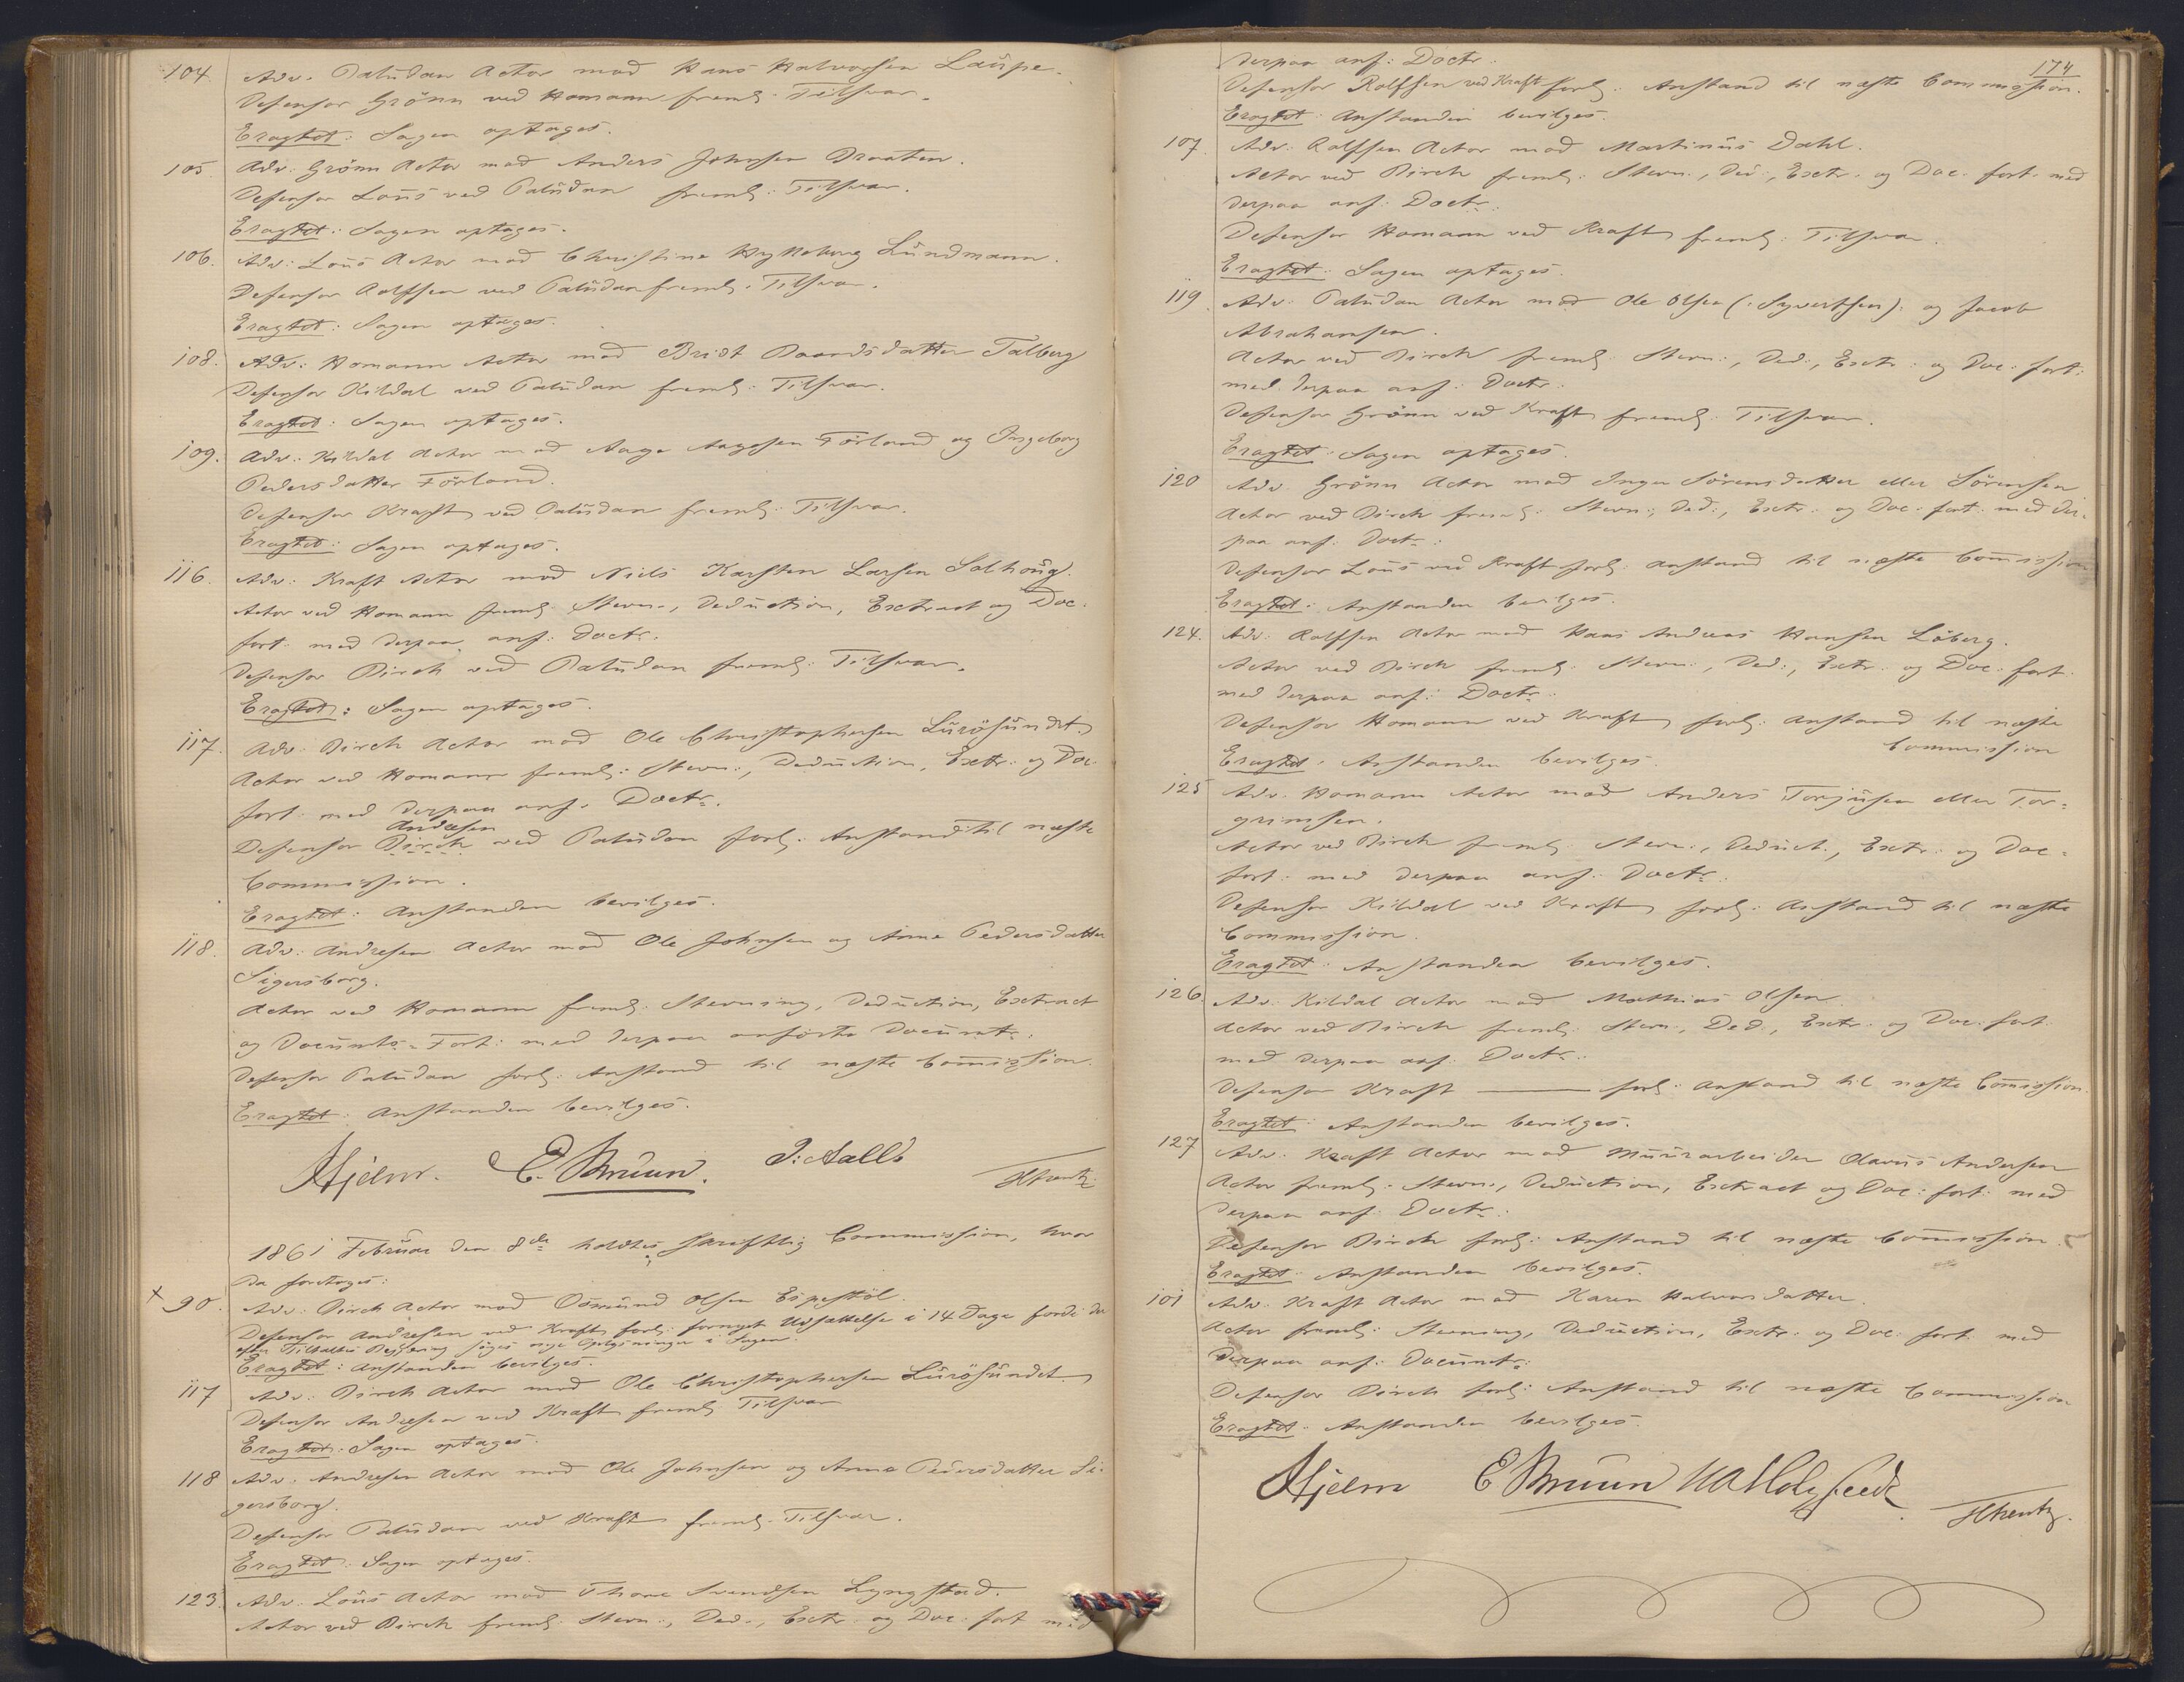 104. Adv. Paludan Actor mod Hans Halvorsen Laupe.
Defensor Grönn ved Homann freml: Tilsvar.
Eragtet: Sagen optages.
105. Adv: Grönn Actor mod Anders Johnsen Braaten.
Defensor Lous ved Paludan freml: Tilsvar.
Eragtet: Sagen optages.
106. Adv: Lous Actor mod Christine Lundmann.
Defensor Rolfsen ved Paludan freml: Tilsvar.
Eragtet: Sagen optages.
108. Adv: Homann Actor mod Bridt Baardsdatter Talberg
Defensor Kildal ved Paludan freml: Tilsvar.
Eragtet: Sagen optages.
109. Adv: Kildal Actor mod Aage Aagesen Förland og Ingeborg
Pedersdatter Förland.
Defensor Kraft ved Paludan freml: Tilsvar.
Eragtet: Sagen optages.
116. Adv: Kraft Actor mod Niels Karsten Larsen Solhoug.
Actor ved Homann freml: Stevn:, Deduction, Extract og Doc:
fort: med derpaa anf: Doctr.
Defensor Birch ved Paludan freml: Tilsvar.
Eragtet: Sagen optages.
117. Adv: Birch Actor mod Ole Christophersen Luröesundet
Actor ved Homann freml: Stevn:, Deduction, Extr: og Doc:
fort: med derpaa anf: Doctr.
Andresen
Defensor Birch ved Paludan forl: Anstand til næste
Commission.
Eragtet: Anstanden bevilges.
118. Adv: Andresen Actor mod Ole Johnsen og Anne Pedersdatter
Sigersborg.
Actor ved Homann freml: Stevning, Deduction, Extract
og Documts-Fort: med derpaa anförte Documtr.
Defensor Paludan forl: Anstand til næste Comission.
Eragtet: Anstanden bevilges.
Hjelm. E. Bruun. J: Aall
1861 Februar den 8de holdtes skriftlig Commission, hvor
da foretoges:
x 90. Adv: Birch Actor mod Osmund Olsen Espestöl.
Defensor Andresen ved Kraft forl: fornyet Udsættelse i 14 Dage fordi der
efter Tiltaltes Begjæring söges nye Oplysninger i Sagen.
Eragtet: Anstanden bevilges.
117 Adv: Birch Actor mod Ole Christophersen Luröesundet
Defensor Andresen ved Kraft freml: Tilsvar
Eragtet: Sagen optages.
118 Adv: Andresen Actor mod Ole Johnsen og Anne Pedersdatter Si-
gersborg.
Defensor Paludan ved Kraft freml: Tilsvar.
Eragtet: Sagen optages.
123. Adv: Lous Actor mod Thore Svendsen Lyngstad.
Actor ved Birch freml: Stevn:, Ded:, Extr: og Doc: fort med
174
derpaa anf: Doctr:
Defensor Rolfsen ved Kraft forl: Anstand til næste Commission.
Eragtet: Anstanden bevilges.
107. Adv: Rolfsen Actor mod Martinus Dahl.
Actor ved Birch freml: Stevn:, Ded:, Extr: og Doc: fort: med
derpaa anf: Doctr:
Defensor Homann ved Kraft freml: Tilsvar.
Eragtet: Sagen optages.
119 Adv: Paludan Actor mod Ole Olsen (: Syvertsen): og Jacob
Abrahamsen.
Actor ved Birch freml: Stevn:, Ded:, Extr: og Doc: fort:
med derpaa anf: Doctr:
Defensor Grönn ved Kraft freml: Tilsvar.
Eragtet: Sagen optages.
120 Adv Grönn Actor mod Inger Sörensdatter eller Sörensen
Actor ved Birch freml: Stevn:, Ded:, Extr: og Doc: fort: med der-
paa anf: Doctr:
Defensor Lous ved Kraft forl: Anstand til næste Comission
Eragtet: Anstanden bevilges.
124. Adv: Rolfsen Actor mod Hans Andreas Hansen Löberg.
Actor ved Birch freml: Stevn:, Ded:, Extr: og Doc: fort:
med derpaa anf: Doctr:
Defensor Homann ved Kraft forl: Anstand til næste
Commission
Eragtet: Anstanden bevilges.
125 Adv: Homann Actor mod Anders Torjusen eller Tor-
grimsen.
Actor ved Birch freml: Stevn:, Deduct:, Extr: og Doc:
fort: med derpaa anf: Doctr:
Defensor Kildal ved Kraft forl: Anstand til næste
Commission.
Eragtet: Anstanden bevilges.
126. Adv: Kildal Actor mod Mathias Olsen
Actor ved Birch freml: Stevn:, Ded:, Extr: og Doc: fort:
med derpaa anf: Doctr:
Defensor Kraft — forl: Anstand til næste Comission.
Eragtet: Anstanden bevilges.
127 Adv: Kraft Actor mod Muurarbeider Olavus Andersen
Actor freml: Stevn:, Deduction, Extract og Doc: fort: med
derpaa anf: Doctr:
Defensor Birch forl: Anstand til næste Comission.
Eragtet: Anstanden bevilges.
101 Adv: Kraft Actor mod Karen Halvorsdatter.
Actor freml: Stevning, Deduction, Extr: og Doc: fort: med
derpaa anf: Documtr:
Defensor Birch forl: Anstand til næste Commission
Eragtet: Anstanden bevilges.
Hjelm E Bruun